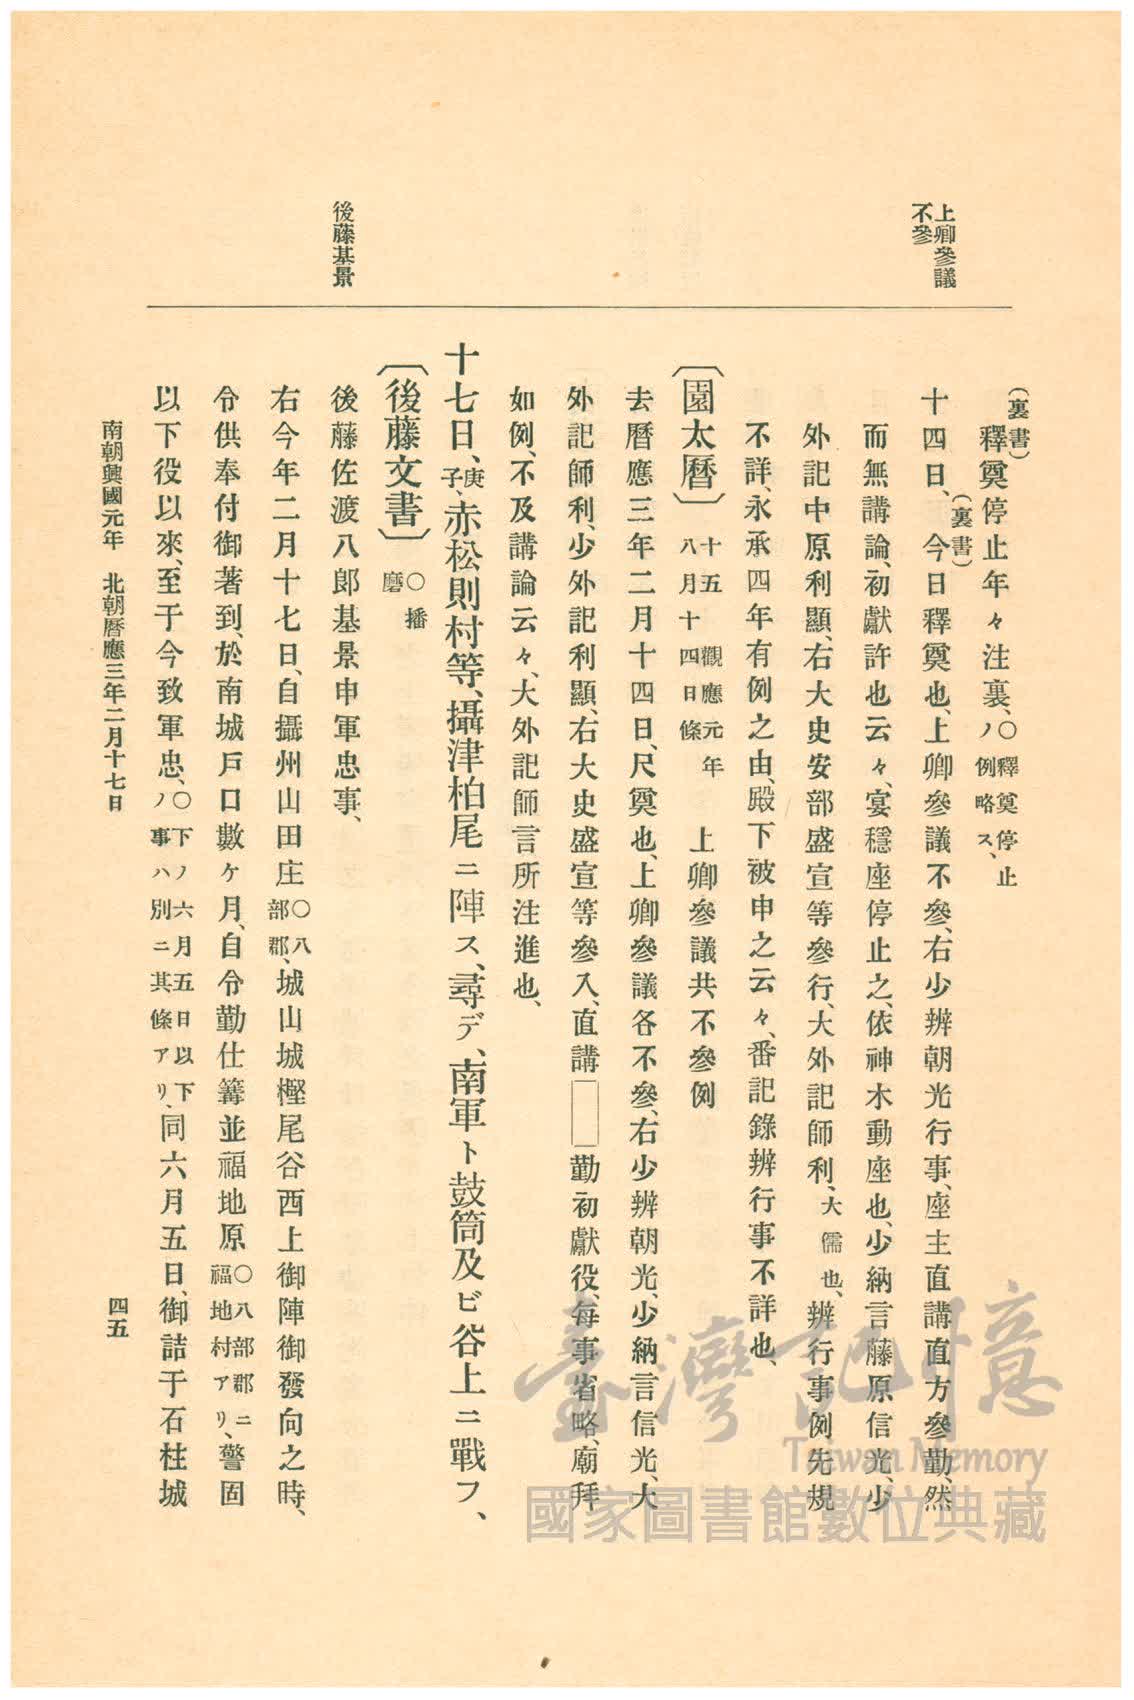 上卿參議
不參
後藤基景
(裏書)
釋奠停止年々注裏、〇釋奠停止ノ例略ス、
(裏書)
十四日、今日釋奠也、上卿參議不參、右少辨朝光行事、座主直講直方參勤、然
而無講論、初獻許也云々、宴穩座停止之、依神木動座也、少納言藤原信光、少
外記中原利顯、右大史安部盛宣等參行、大外記師利、大儒也、辨行事例先規
不詳、永承四年有例之由、殿下被申之云々、番記錄辨行事不詳也、
〔園太曆〕十五 觀應元年八月十四日條 上卿參議共不參例
去曆應三年二月十四日、尺奠也、上卿參議各不參、右少辨朝光、少納言信光、大
外記師利、少外記利顯、右大史盛宣等參入、直講□勤初獻役、每事省略、廟拜
如例、不及講論云々、大外記師言所注進也、
十七日、庚子、赤松則村等、攝津柏尾ニ陣ス、尋デ、南軍ト鼓筒及ビ谷上ニ戰フ、
〔後藤文書〕〇播磨
後藤佐渡八郎基景申軍忠事、
右今年二月十七日、自攝州山田庄〇八部郡、城山城樫尾谷西上御陣御發向之時、
令供奉付御著到、於南城戶口數ケ月、自令勤仕篝並福地原〇八部郡ニ福地村アリ、警固
以下役以來、至于今致軍忠、〇下ノ六月五日以下ノ事ハ別ニ其條アリ、同六月五日、御詰于石柱城
南朝興國元年 北朝曆應三年二月十七日
四五
臺灣記憶
Taiwan Memory
國家圖書館數位典藏